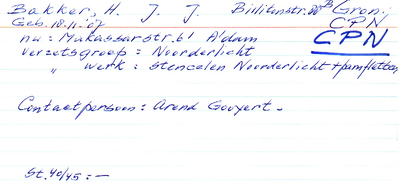 Bakker, H. J. J. Billitonstr. 20B Gron.
Geb. 10.11.'07 CPN
nu = Makassarstr. 61 A'dam CPN
verzetsgroep = Noorderlicht
" werk = stencelen Noorderlicht + pamfletten
Contactpersoon: Arend Gooyert.
St. 40/45: —